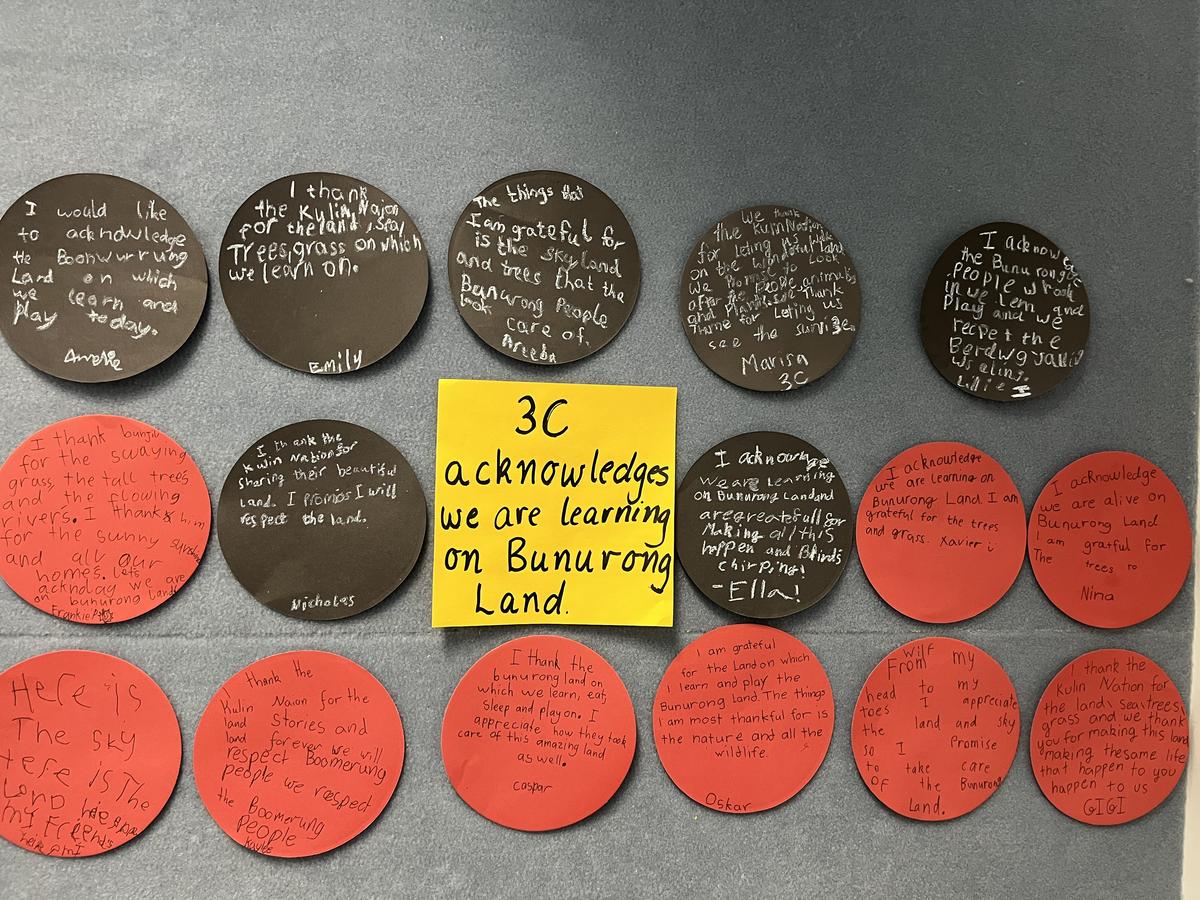 I would like
to acknowledge
the Boonwurrung
Land on which
we learn and
play today.
Amelie
I thank
the Kulin Naion
for the land, sea,
Trees, grass on which
we learn on.
Emily
The things that
I am grateful for
is the sky land
and trees that the
Bunurong People
look care of.
Areeba
We thank
the Kulin Nation
for leting
on the land
We Promise to Look
after the People, animals
and Plants. We Thank
Theme for Leting us
see the sunrise.
Marisa
3C
I acknow
the Bunurong
People
in we lern and
Play and we
recpet the
Lillie H
I thank bunjil
for the swaying
grass the tall trees
and the flowing
rivers. I thank him
for the sunny
and all our
homes. Lets
we are
on bunurong Land
Frankie
I thank the
Kulin Nation for
sharing their beautiful
Land. I promis I will
respect the land.
Nicholas
3C
acknowledges
we are learning
on Bunurong
Land.
I acknowlage
We are Learning
on Bunurong Land and
are greatefull for
Making all this
happen and Birids
chirping!
-Ella!
I acknowledge
we are learning on
Bunurong Land I am
grateful for the trees
and grass. Xavier
I acknowledge
we are alive on
Bunurong Land
I am gratful for
The trees
Nina
Here is
The sky
here is The
Land
my Friends
I thank the
Kulin Naion for the
land Stories and
land forever we will
respect Boomerung
people we respect
the Boomerung
People
Kaylee
I thank the
bunurong land on
which we learn, eat,
sleep and play on. I
appreciate how they took
care of this amazing land
as well.
Caspar
I am grateful
for the Land on which
I learn and play the
Bunurong land. The things
I am most thankful for is
the nature and all the
wildlife.
Oskar
Wilf
From my
head to my
toes I appreciate
the land and sky
so I Promise
to take care
OF the Bunurong
Land.
I thank the
Kulin Nation for
the land, sea, trees
grass and we thank
you for making this land
making the same life
that happen to you
happen to us
GIGI